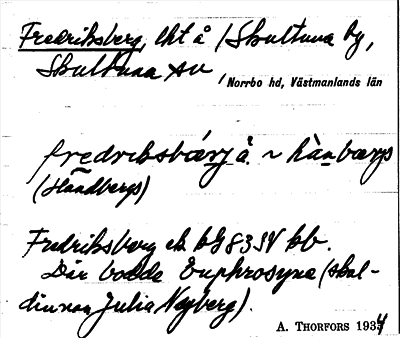 Fredriksberg, lht å / Skultuna by,
Skultuna sn, Norrbo hd, Västmanlands län
fredriksbærj å. ~ hànbærgs
(Handbergs)
Fredriksberg ek bl 83 SV bb.
Där bodde Euphrosyne (skal-
dinnan Julia Nyberg).
A. THORFORS 1934